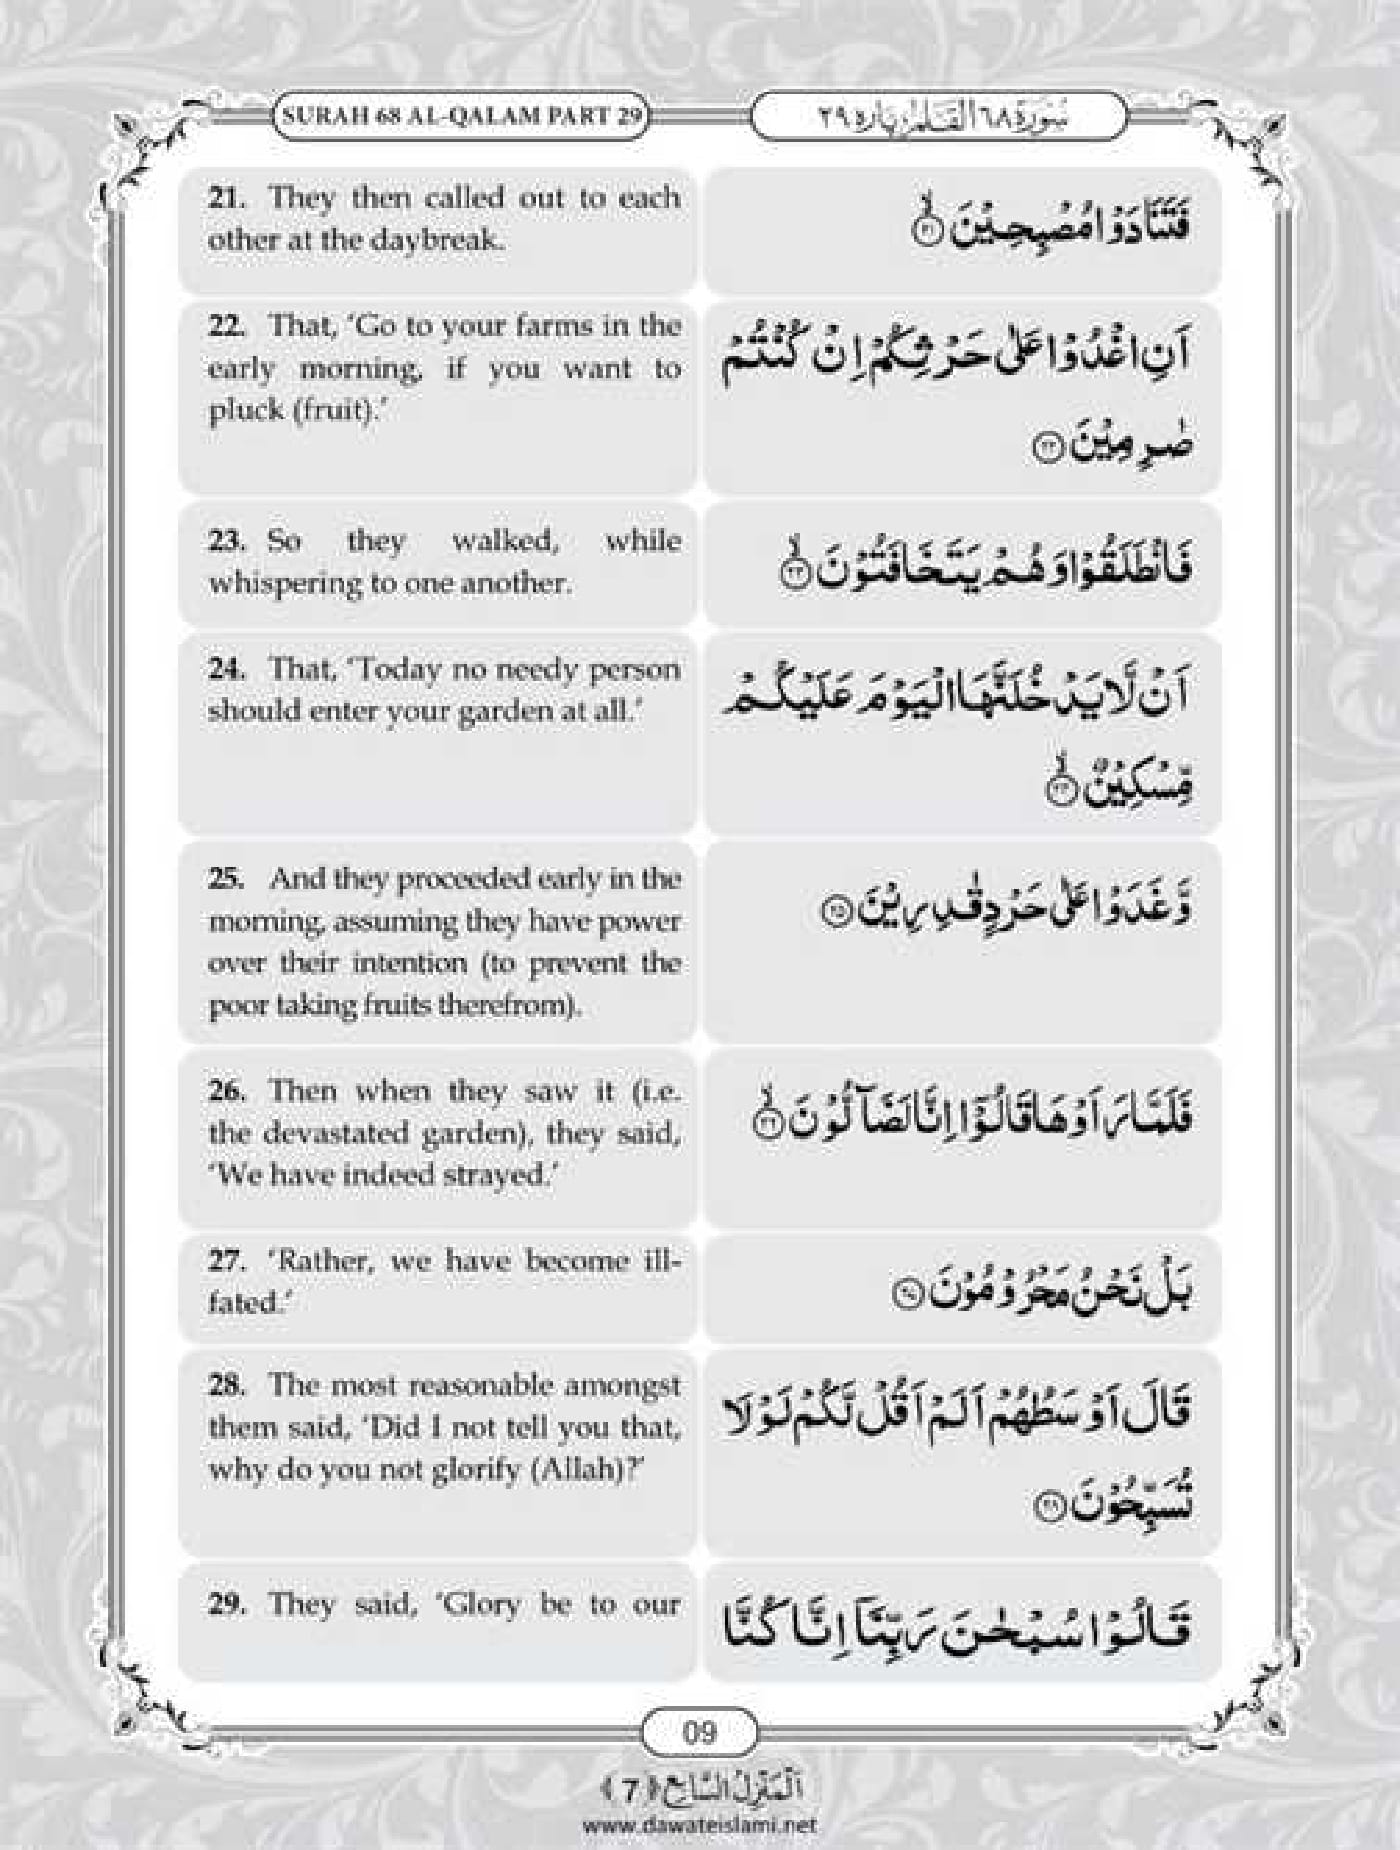 SURAH 68 AL-QALAM PART 29
سُوْرَةُ ٦٨ الْقَلَمِ، پارہ ٢٩
21. They then called out to each
other at the daybreak.
فَتَنَادَوْا مُصْبِحِيْنَ ۙ﴿۲۱﴾
22. That, ‘Go to your farms in the
early morning, if you want to
pluck (fruit).’
اَنِ اغْدُوْا عَلٰى حَرْثِكُمْ اِنْ كُنْتُمْ
صٰرِمِيْنَ ﴿۲۲﴾
23. So they walked, while
whispering to one another.
فَانْطَلَقُوْا وَ هُمْ يَتَخَافَتُوْنَ ۙ﴿۲۳﴾
24. That, ‘Today no needy person
should enter your garden at all.’
اَنْ لَّا يَدْخُلَنَّهَا الْيَوْمَ عَلَيْكُمْ
مِّسْكِيْنٌ ۙ﴿۲۴﴾
25. And they proceeded early in the
morning, assuming they have power
over their intention (to prevent the
poor taking fruits therefrom).
وَّ غَدَوْا عَلٰى حَرْدٍ قٰدِرِيْنَ ﴿۲۵﴾
26. Then when they saw it (i.e.
the devastated garden), they said,
‘We have indeed strayed.’
فَلَمَّا رَاَوْهَا قَالُوْۤا اِنَّا لَضَآلُّوْنَ ۙ﴿۲۶﴾
27. ‘Rather, we have become ill-
fated.’
بَلْ نَحْنُ مَحْرُوْمُوْنَ ﴿۲۷﴾
28. The most reasonable amongst
them said, ‘Did I not tell you that,
why do you not glorify (Allah)?’
قَالَ اَوْسَطُهُمْ اَلَمْ اَقُلْ لَّكُمْ لَوْ لَا
تُسَبِّحُوْنَ ﴿۲۸﴾
29. They said, ‘Glory be to our
قَالُوْا سُبْحٰنَ رَبِّنَاۤ اِنَّا كُنَّا
09
اَلْمَنْزِلُ السَّابِع ﴿7﴾
www.dawateislami.net